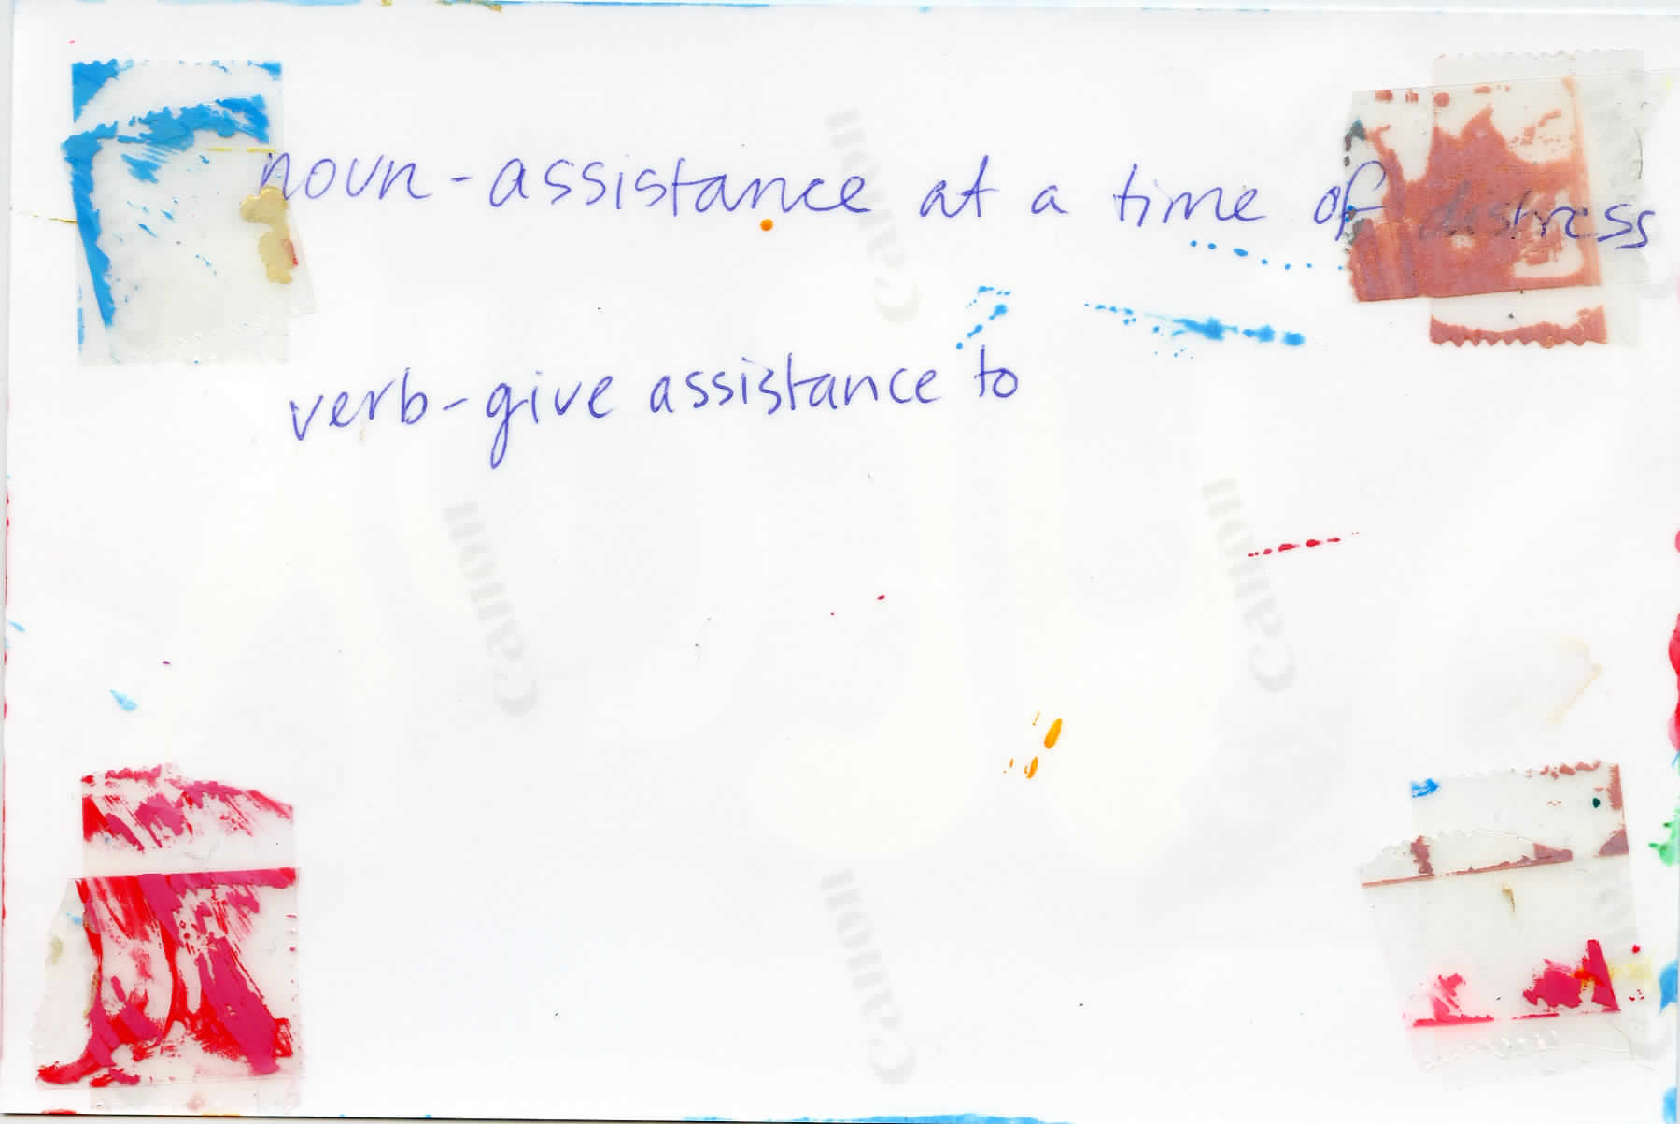 noun - assistance at a time of distress
Canon
verb - give assistance to
Canon
Canon
Canon